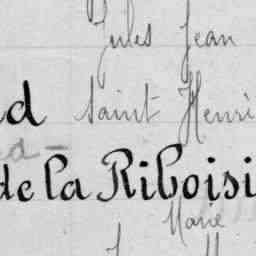 Jules Jean
d Saint Henri
de la Riboisi
Marie